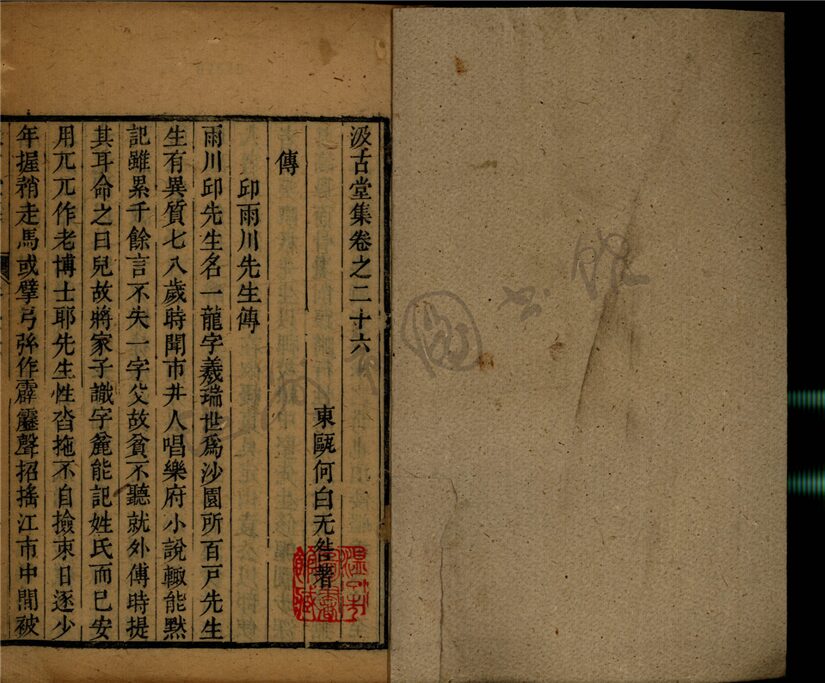 汲古堂集卷之二十六
東甌何白无咎著
傳
邱雨川先生傳
雨川邱先生名一龍字羲瑞世爲沙園所百戶先生
生有異質七八歲時聞市井人唱樂府小說輙能黙
記雖累千餘言不失一字父故貧不聽就外傅時提
其耳命之曰兒故將家子識字麄能記姓氏而已安
用兀兀作老博士耶先生性沓拖不自撿束日逐少
年握矟走馬或擘弓弅作霹靂聲招搖江市中間被